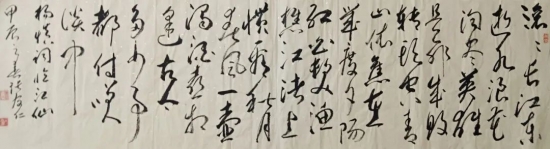 滚〻长江东
逝水浪花
淘尽英雄
是非成败
转头空青
山依舊在
几度夕阳
红白发渔
樵江渚上
惯看秋月
春风一壶
浊酒喜相
逢古今
多少事
都付笑
谈中
杨慎词临江仙
甲辰之春